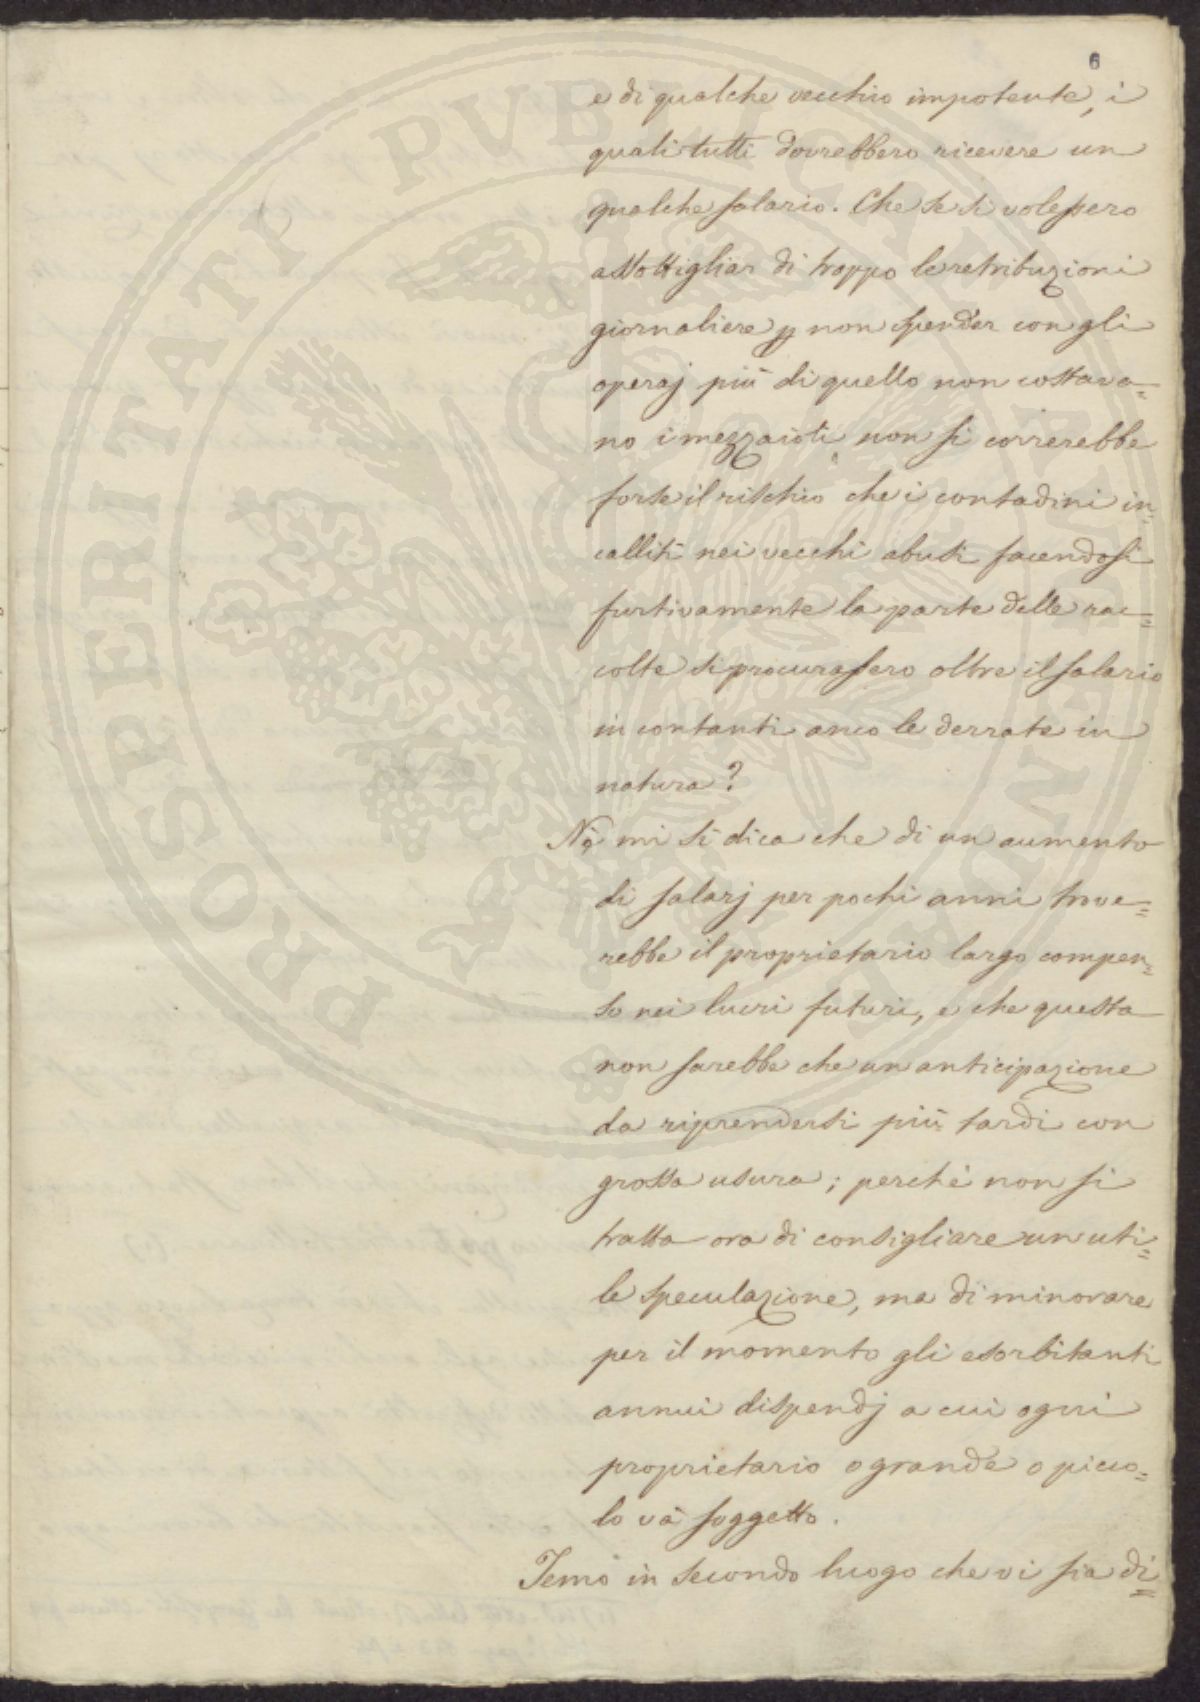 6
e di qualche vecchio impotente, i
quali tutti dovrebbero ricevere un
qualche salario. Che se si volessero
assottigliar di troppo le retribuzioni
giornaliere p non spender con gli
operaj più di quello non costava=
no i mezzaioti non si correrebbe
forse il rischio che i contadini in=
calliti nei vecchi abusi facendosi
furtivamente la parte delle rac=
colte si procurassero oltre il salario
in contanti anco le derrate in
natura?
Nè mi si dica che di un aumento
di salarj per pochi anni trove=
rebbe il proprietario largo compen=
so nei lucri futuri, e che questa
non sarebbe che un anticipazione
da riprendersi più tardi con
grossa usura; perchè non si
tratta ora di consigliare un uti=
le speculazione, ma di minorare
per il momento gli esorbitanti
annui dispendj a cui ogni
proprietario o grande o picco=
lo và soggetto.
Temo in secondo luogo che vi sia di=
PROSPERITATI PUBLICAE